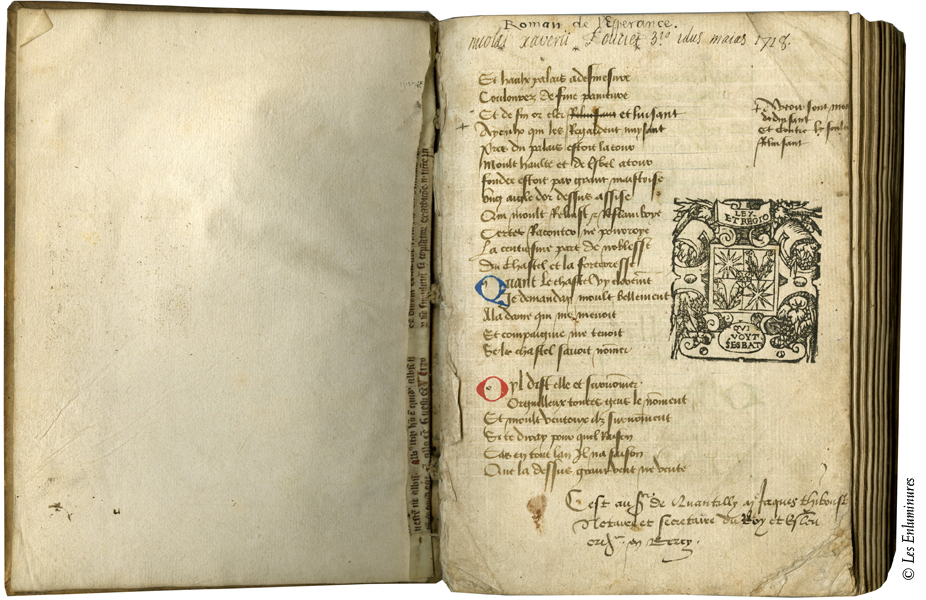 Roman de l'Esperance.
nicolas xaverii Fourier 3.º idus maias 1718.
Et hault palais a desmesure
Coulourez de fine painture
Et de fin or cler Reluisant et luisant
A ceulx qui les Regardent nuysant
Pres du palais estoit la tour
Moult haulte et de bel atour
fondee estoit par grant maistrise
Ung aigle dor dessus assise
Qui moult Reluist et Reflamboye
Certes Raconter ne pourroye
La centiesme part de noblesse
Du Chastel et la forteresse
Quant le chastel vy
Je demanday moult bellement
A la dame qui me menoit
Et compaignie me tenoit
Se le chastel savoit nommer
Oyl dist elle et surnommer
Orgueilleux toutes gens le nomment
Et moult venteux ilz surnomment
Si te diray pour quel Raison
Car en tout lan Il na saison
Que la dessus grant vent ne vente
sont
et contre le soleil
Reluisant
LEY
ET REGIO
QVI
VOYT
SESBAT
Cest au Sr de Quantilly Jaques thiboust
Notaire et secretaire du Roy et Esleu
en Berry.
© Les Enluminures